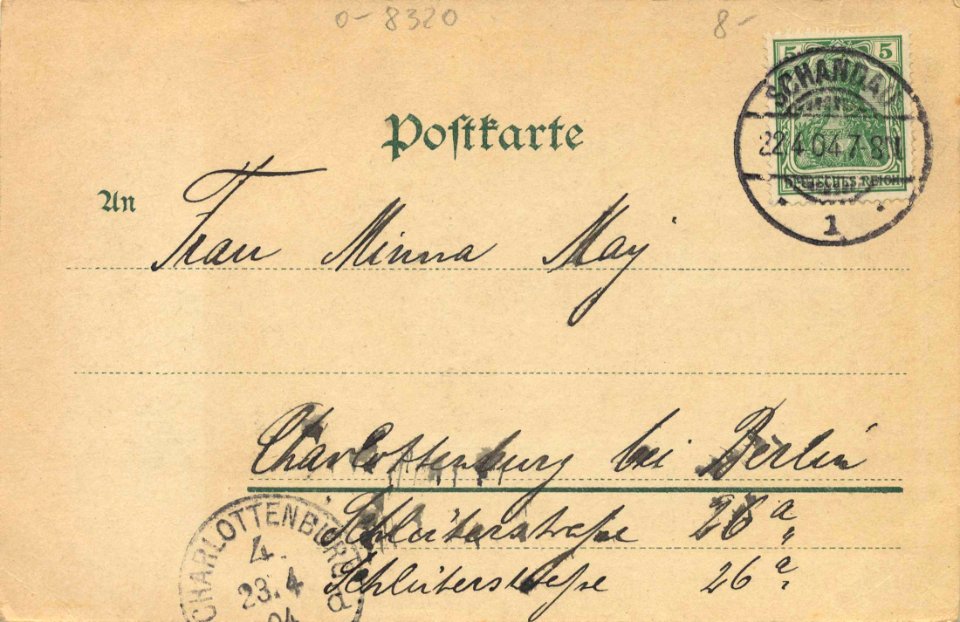 0-8320 8-
5 5
SCHANDAU
22.4.04.7-8N
DEUTSCHES REICH
1
Postkarte
An
Frau Minna May
Charlottenburg bei Berlin
Schlüterstraße 26a
Schlüterstraße 26a
CHARLOTTENBURG
4.
23.4
04
d